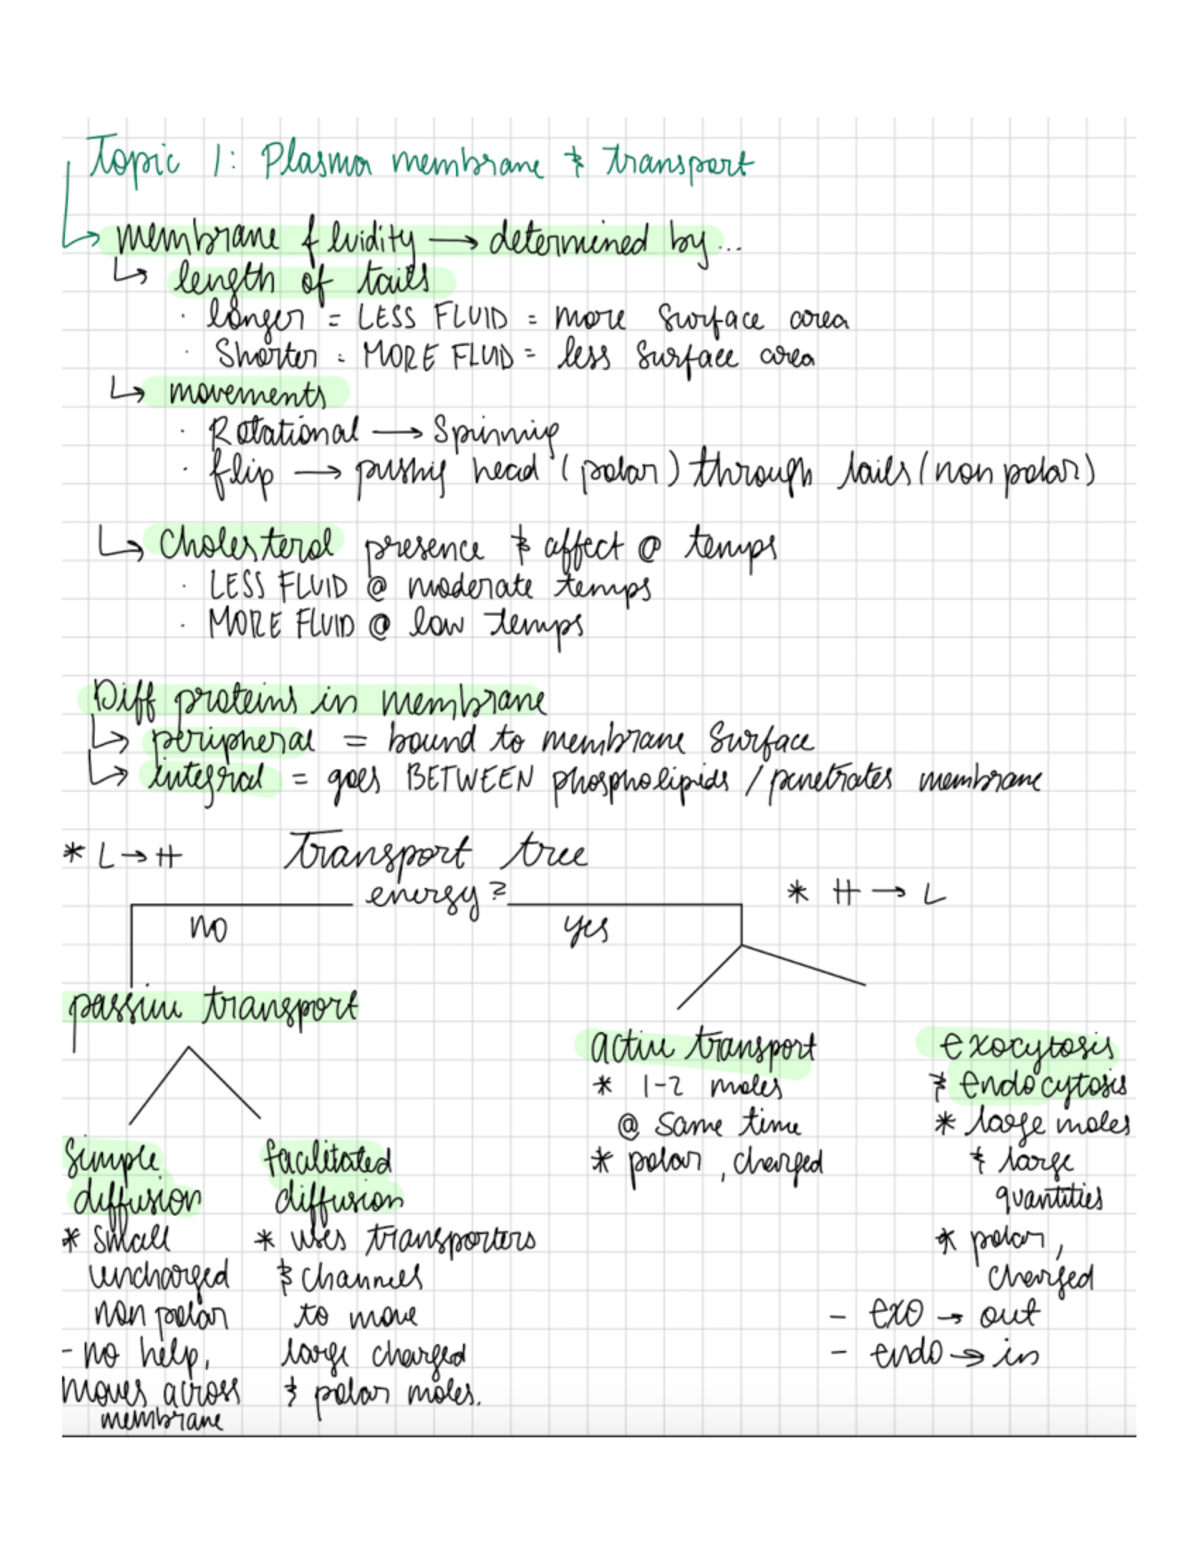 Topic 1: Plasma membrane & transport
↳ membrane fluidity → determined by...
↳ length of tails
· longer = LESS FLUID = more surface area
· Shorter = MORE FLUID = less surface area
↳ movements
· Rotational → Spinning
· flip → pushing head (polar) through tails (non polar)
↳ Cholesterol presence & affect @ temps
· LESS FLUID @ moderate temps
· MORE FLUID @ low temps
Diff proteins in membrane
↳ peripheral = bound to membrane surface
↳ integral = goes BETWEEN phospholipids / penetrates membrane
* L → H Transport tree
energy? * H → L
no yes
passive transport
active transport
* 1-2 moles
@ same time
* polar, charged
exocytosis
& endocytosis
* large moles
& large
quantities
* polar,
charged
- exo → out
- endo → in
Simple
diffusion
* small
uncharged
non polar
- no help,
moves across
membrane
facilitated
diffusion
* uses transporters
& channels
to move
large charged
& polar moles.